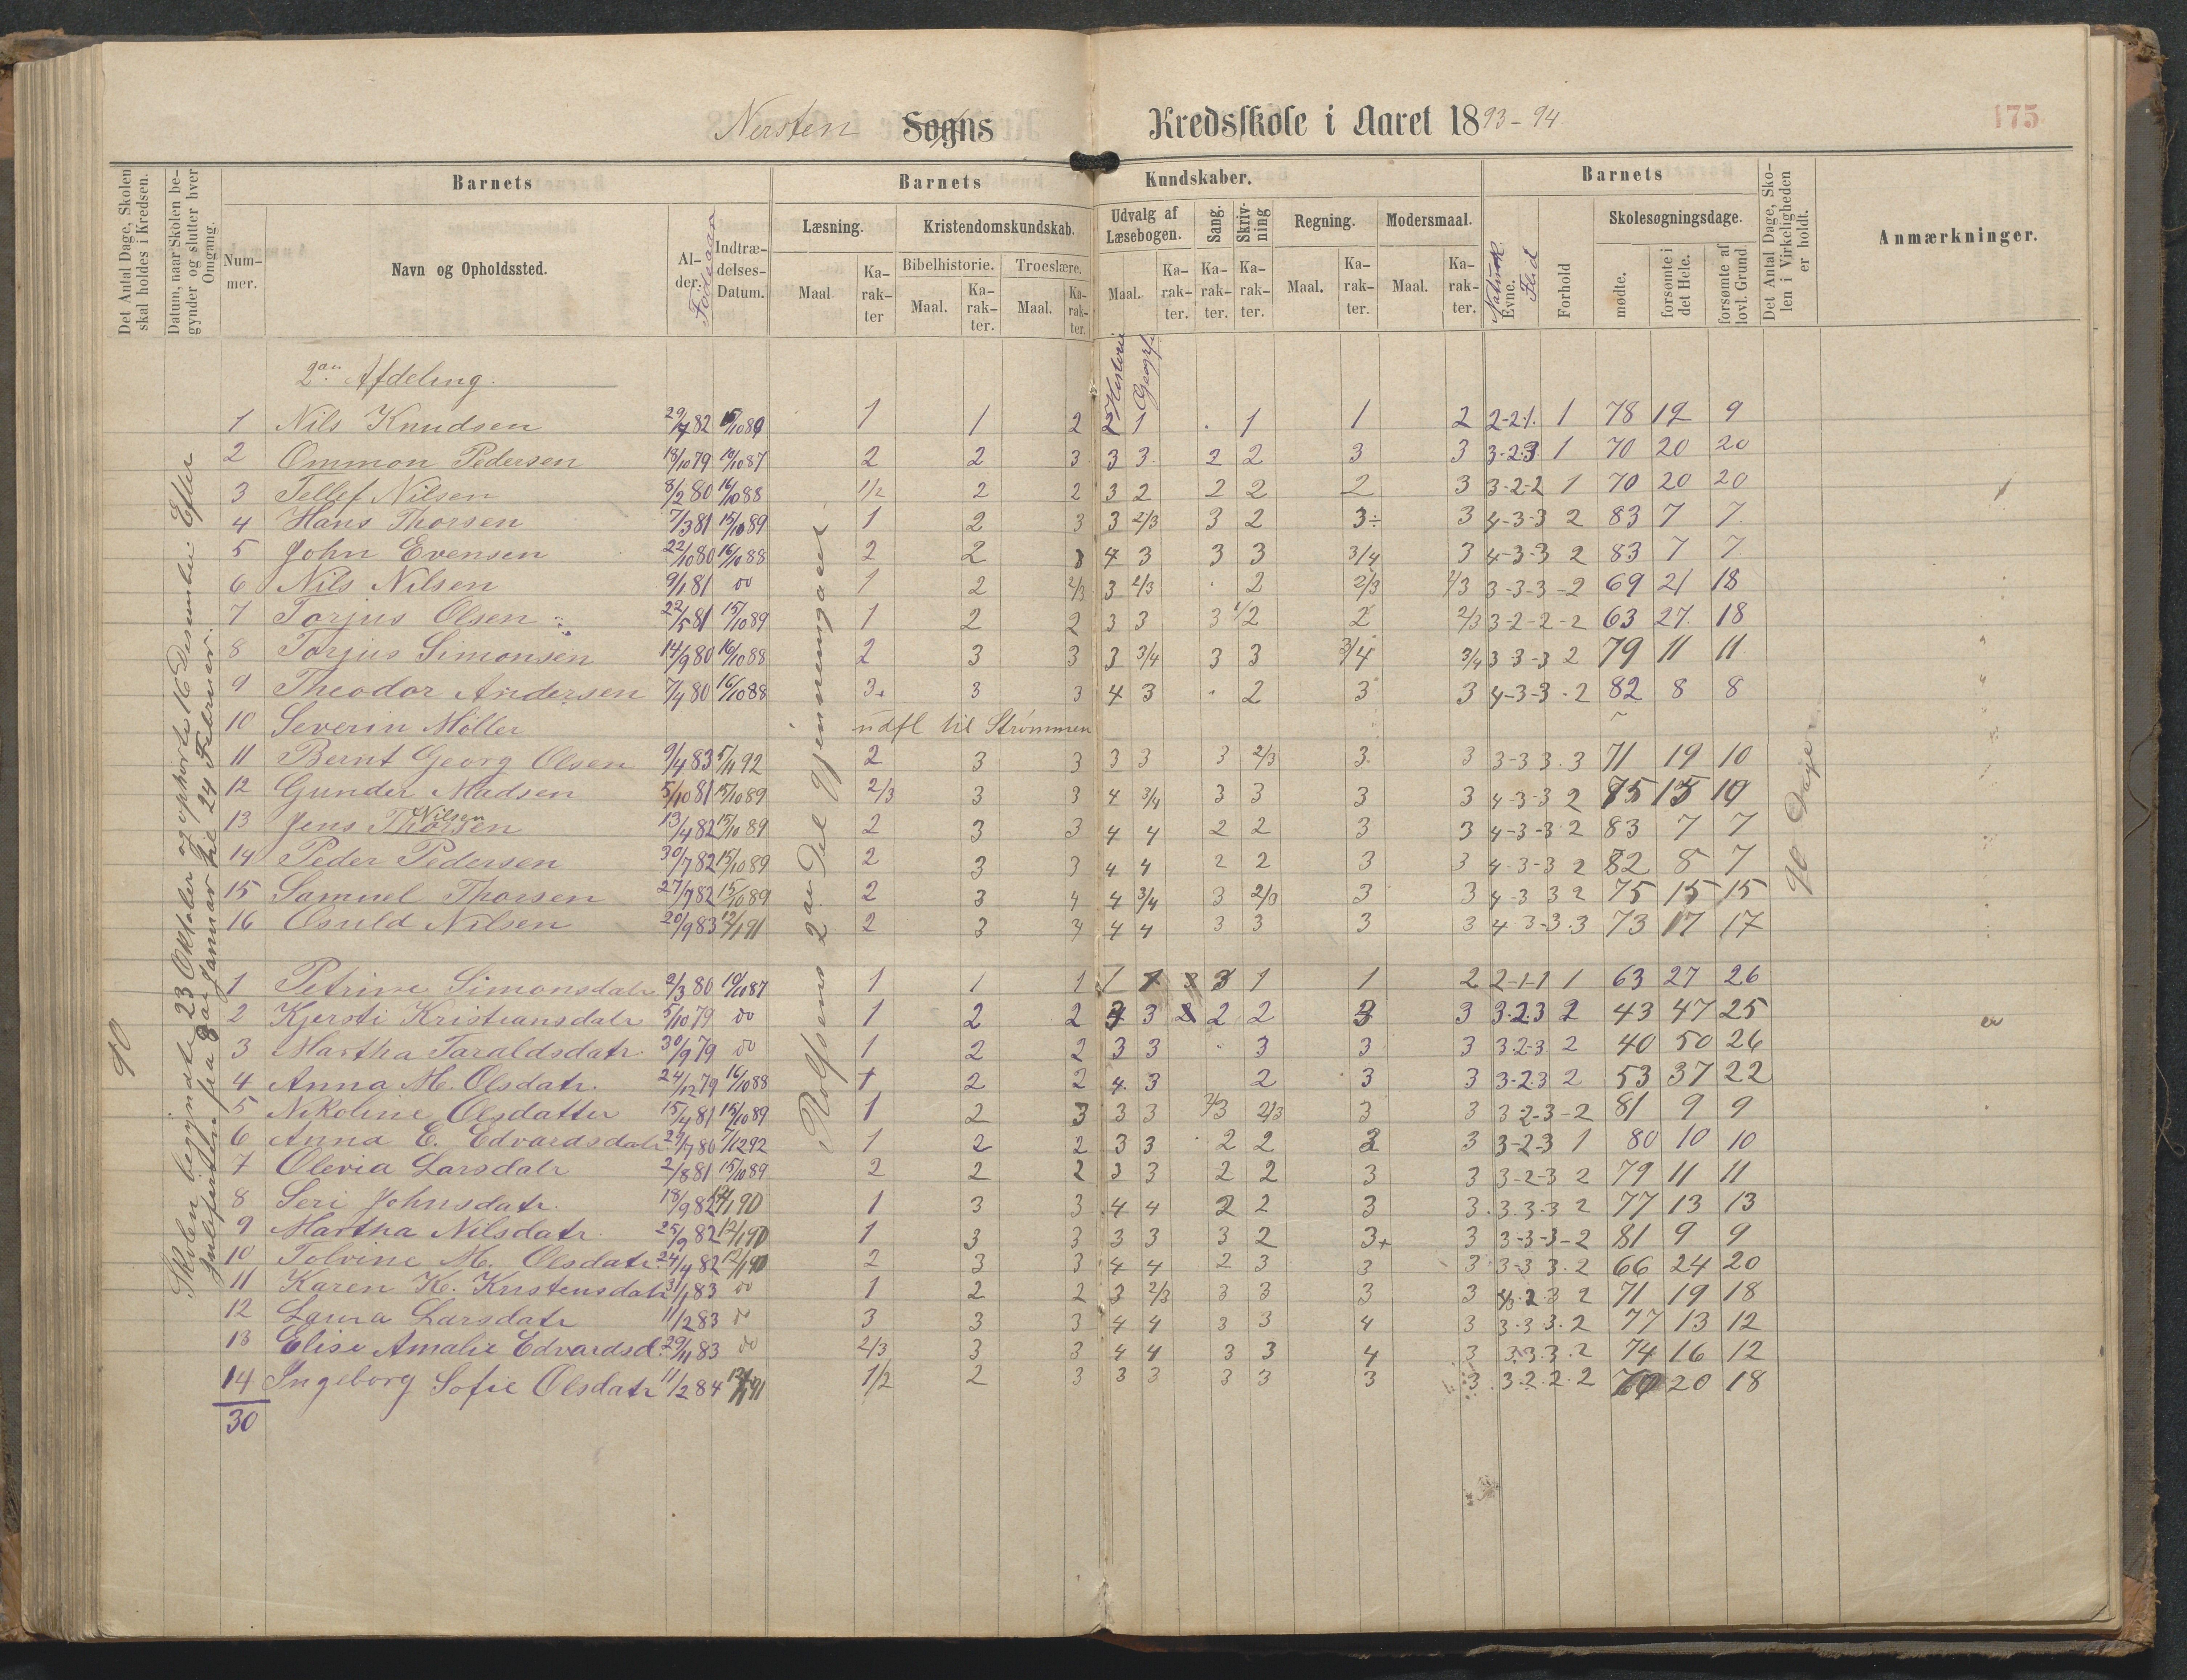 Nersten Sogns Kredsskole i Aaret 1893-94 175
Det Antal Dage, Skolen skal holdes i Kredsen.
Datum, naar Skolen begynder og slutter hver Omgang.
Barnets
Nummer.
Navn og Opholdssted.
Alder. Födselsaar
Indtrædelses-Datum.
Barnets Kundskaber.
Læsning. Maal. Karakter
Kristendomskundskab.
Bibelhistorie. Maal. Karakter.
Troeslære. Maal. Karakter.
Udvalg af Læsebogen. Maal. Karakter.
Historie Geografi
Sang. Karakter.
Skrivning Karakter.
Regning. Maal. Karakter.
Modersmaal. Maal. Karakter.
Barnets
Evne. Flid
Forhold
Skolesøgningsdage.
mødte.
forsømte i det Hele.
forsømte af lovl. Grund
Det Antal Dage, Skolen i Virkeligheden er holdt.
Anmærkninger.
90
Skolen begyndte 23 Oktober og ophørte 16 Desember. Efter
Juleferien fra 8de Januar til 24 Februar.
Rolfsens 2den Del gjennemgaaet
90 Dage
2den Afdeling.
1 Nils Knudsen 29/7 82 15/10 89 1 1 2 2 1 1 1 2 2-2-1. 1 78 12 9
2 Ommon Pedersen 18/10 79 10/10 87 2 2 3 3 3 2 2 3 3 3-2-3 1 70 20 20
3 Tellef Nilsen 8/2 80 16/10 88 1/2 2 2 3 2 2 2 2 3 3-2-2 1 70 20 20
4 Hans Thorsen 7/3 81 15/10 89 1 2 3 3 2/3 3 2 3÷ 3 4-3-3 2 83 7 7
5 John Evensen 22/10 80 16/10 88 2 2 3 4 3 3 3 3/4 3 4-3-3 2 83 7 7
6 Nils Nilsen 9/1 81 do 1 2 2/3 3 2/3 2 2/3 2/3 3-3-3-2 69 21 18
7 Torjus Olsen 22/5 81 15/10 89 1 2 2 3 3 3 1/2 2 2/3 3-2-2-2 63 27 18
8 Torjus Simonsen 14/9 80 16/10 88 2 3 3 3 3/4 3 3 3/4 3/4 3 3-3 2 79 11 11
9 Theodor Andersen 7/4 80 16/10 88 3+ 3 3 4 3 2 3 3 4-3-3-2 82 8 8
10 Severin Möller udfl til Strømmen
11 Bernt Georg Olsen 9/4 83 5/11 92 2 3 3 3 3 3 2/3 3 3 3-3 3.3 71 19 10
12 Gunder Madsen 5/10 81 15/10 89 2/3 3 3 4 3/4 3 3 3 3 4-3-3 2 75 15 10
13 Jens Thorsen Nilsen 13/4 82 15/10 89 2 3 3 4 4 2 2 3 3 4-3-3 2 83 7 7
14 Peder Pedersen 30/7 82 15/10 89 2 3 3 4 4 2 2 3 3 4-3-3 2 82 8 7
15 Samuel Thorsen 27/7 82 15/10 89 2 3 4 4 3/4 3 2/3 3 3 4-3 3 2 75 15 15
16 Osuld Nilsen 20/9 83 12/1 91 2 3 4 4 3 3 3 3 4 3-3.3 73 17 17
1 Petrine Simonsdatr 2/3 80 10/10 87 1 1 1 1 1 3 1 1 2 2-1-1 1 63 27 26
2 Kjersti Kristiansdatr 5/10 79 do 1 2 2 3 3 2 2 3 3 3-2-3 2 43 47 25
3 Martha Taraldsdatr. 30/9 79 do 1 2 2 3 3 3 3 3 3-2-3 2 40 50 26
4 Anna M. Olsdatr. 24/12 79 16/10 88 1 2 2 4 3 2 3 3 3-2-3 2 53 37 22
5 Nikoline Olsdatter 15/4 81 15/10 89 1 2 3 3 3 2/3 2/3 3 3 3-2-3-2 81 9 9
6 Anna E. Edvardsdatr 29/7 80 7/12 92 1 2 2 3 3 2 2 3 3 3-2-3 1 80 10 10
7 Olevia Larsdatr 2/8 81 15/10 89 2 2 2 3 3 2 2 3 3 3-2-3 2 79 11 11
8 Seri Johnsdatr. 18/9 82 12/1 90 1 3 3 4 4 2 2 3 3 3.3-3 2 77 13 13
9 Martha Nilsdatr. 25/9 82 12/1 90 1 3 3 3 3 3 2 3+ 3 3-3-3-2 81 9 9
10 Tolvine M. Olsdatr. 24/4 82 12/1 90 2 3 3 4 4 2 3 3 3 3-3 3.2 66 24 20
11 Karen K. Kristensdatr 31/1 83 do 1 2 2 3 2/3 3 3 3 3 4/3-2-3 2 71 19 18
12 Laura Larsdatr 11/2 83 do 3 3 3 4 4 3 3 4 3 3-3 3.2 77 13 12
13 Elise Amalie Edvardsd. 29/11 83 do 2/3 3 3 4 4 3 3 4 3 3.3.3.2 74 16 12
14 Ingeborg Sofie Olsdatr 11/2 84 12/1 91 1/2 2 3 3 3 3 3 3 3 3-2.2.2 70 20 18
30